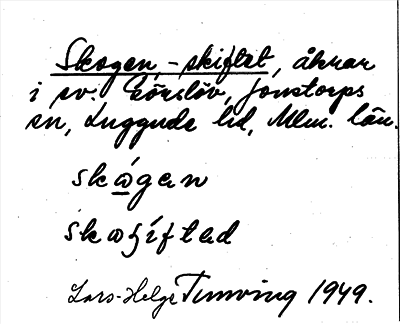 Skogen, -skiftet, åkrar
i sv. Görslöv, Jonstorps
sn, Luggude hd, Mlm. län.
skǫ́gan
skaʃíftad
Lars-Helge Tunving 1949.